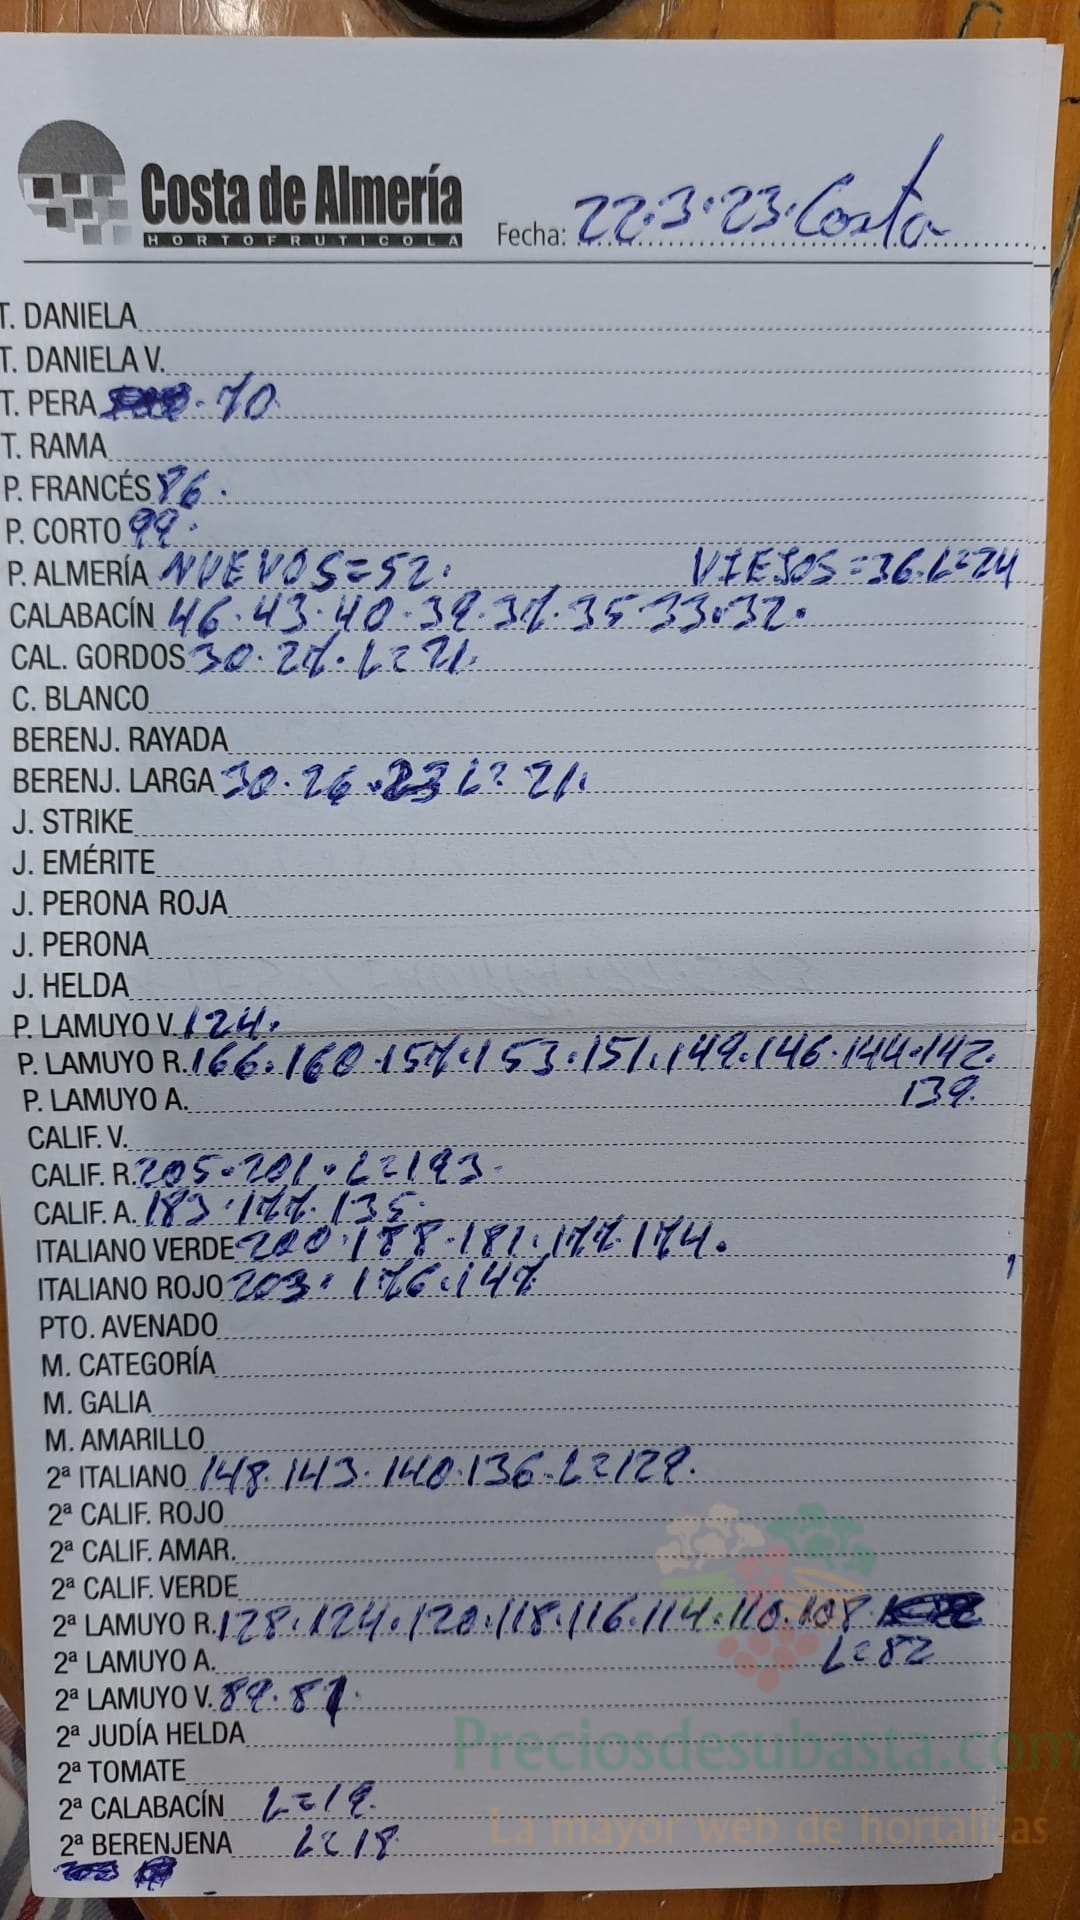 Costa de Almería
HORTOFRUTICOLA
Fecha: 22.3.23. Costa
T. DANIELA
T. DANIELA V.
T. PERA . 70
T. RAMA
P. FRANCÉS 86.
P. CORTO 99.
P. ALMERÍA NUEVOS=52. VIEJOS=36.L=24
CALABACÍN 46.43.40.39.37.35.33.32.
CAL. GORDOS 30.27.L=21.
C. BLANCO
BERENJ. RAYADA
BERENJ. LARGA 30.26.23 L=21.
J. STRIKE
J. EMÉRITE
J. PERONA ROJA
J. PERONA
J. HELDA
P. LAMUYO V. 124.
P. LAMUYO R. 166.160.157.153.151.149.146.144.142.
P. LAMUYO A. 139.
CALIF. V.
CALIF. R. 205.201.L=193.
CALIF. A. 183.177.135.
ITALIANO VERDE 200.188.181.177.174.
ITALIANO ROJO 203.176.147
PTO. AVENADO
M. CATEGORÍA
M. GALIA
M. AMARILLO
2ª ITALIANO 148.143.140.136.L=129.
2ª CALIF. ROJO
2ª CALIF. AMAR.
2ª CALIF. VERDE
2ª LAMUYO R. 128.124.120.118.116.114.110.108.
2ª LAMUYO A. L=82
2ª LAMUYO V. 89.81.
2ª JUDÍA HELDA
2ª TOMATE
2ª CALABACÍN L=19.
2ª BERENJENA L=18.
Preciosdesubasta.com
La mayor web de hortalizas